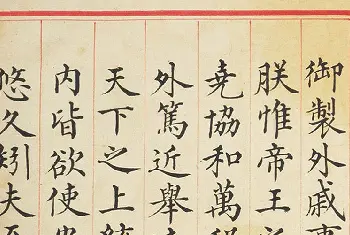 御製外戚事
朕惟帝王
堯協和萬
外篤近舉
天下之上統
内皆欲使
悠久矧夫